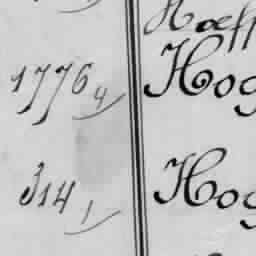 Hoeff
1776 4 Hog
314 1 Hog